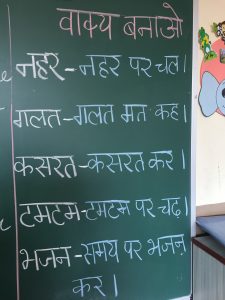 वाक्य बनाओ
नहर-नहर पर चल।
गलत-गलत मत कह।
कसरत-कसरत कर।
टमटम-टमटम पर चढ़।
भजन-समय पर भजन
कर।